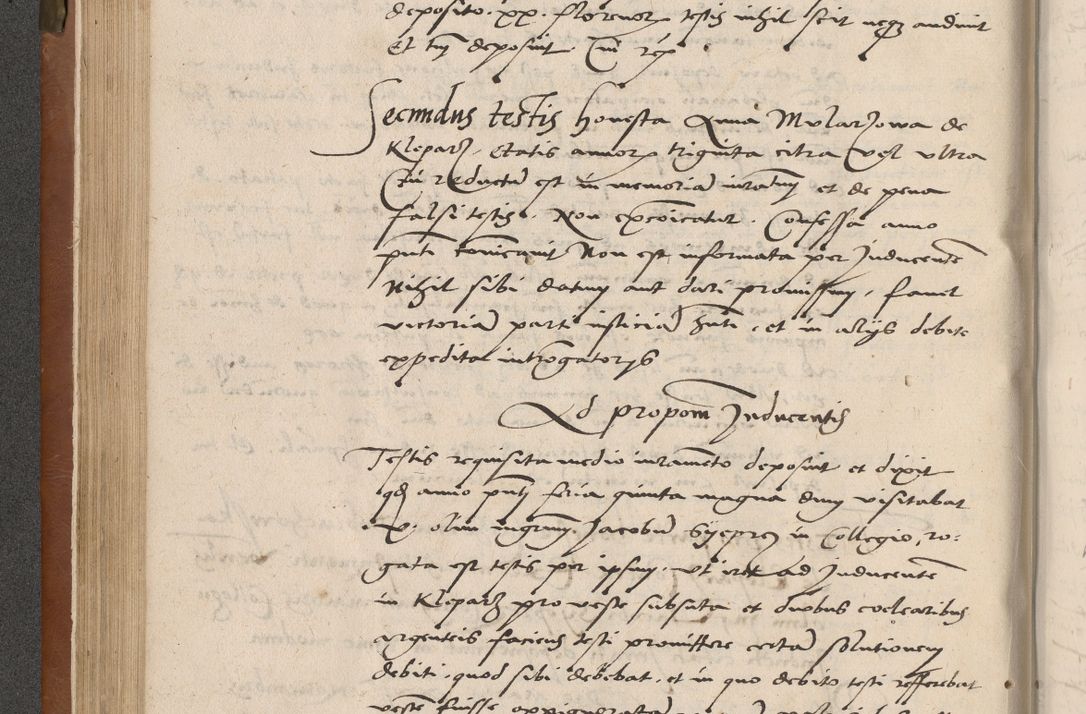 deposito xx florenor testis nihil scit neque audivit
Et tm deposuit Cui rei
Secundus testis honesta Anna Mularzowa de
Kleparz, Etatis annor triginta citra vel ultra
Cui reducta est in memoria iurametm et de pena
falsi testis. Non excoicatur. Confessa anno
pnti coicavit Non est informata per Inducente
Nihil sibi datum aut dari promissum, favet
victoria parti iusticia hnti, et in alijs debite
expedita introgatorijs
Ad propom Inducentis
Testis requisita medio iuramento deposuit et dixit
qd anno pnti feria quinta magna dum visitabat
olim mgrum Jacobu in Collegio, ro-
gata est testis per ipsum. ut iret ad Inducente
in Kleparz pro veste subsuta et duobus coclearibus
argenteis faciens testi promittere certa solutionem
debiti, quod sibi debebat, et in quo debito testi refferebat
veste fuisse